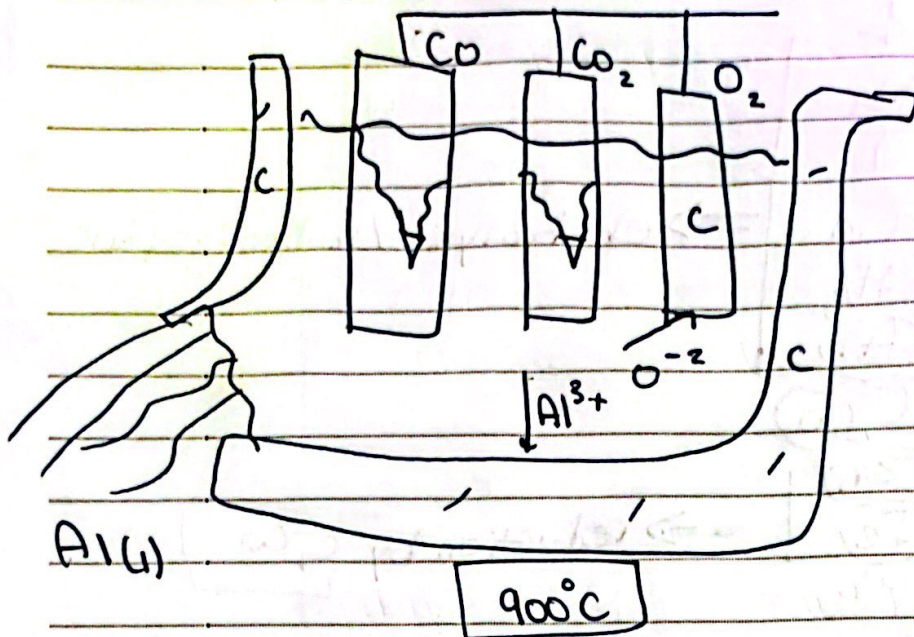 CO
CO₂
O₂
C
C
O⁻²
C
Al³⁺
Al(l)
900°C